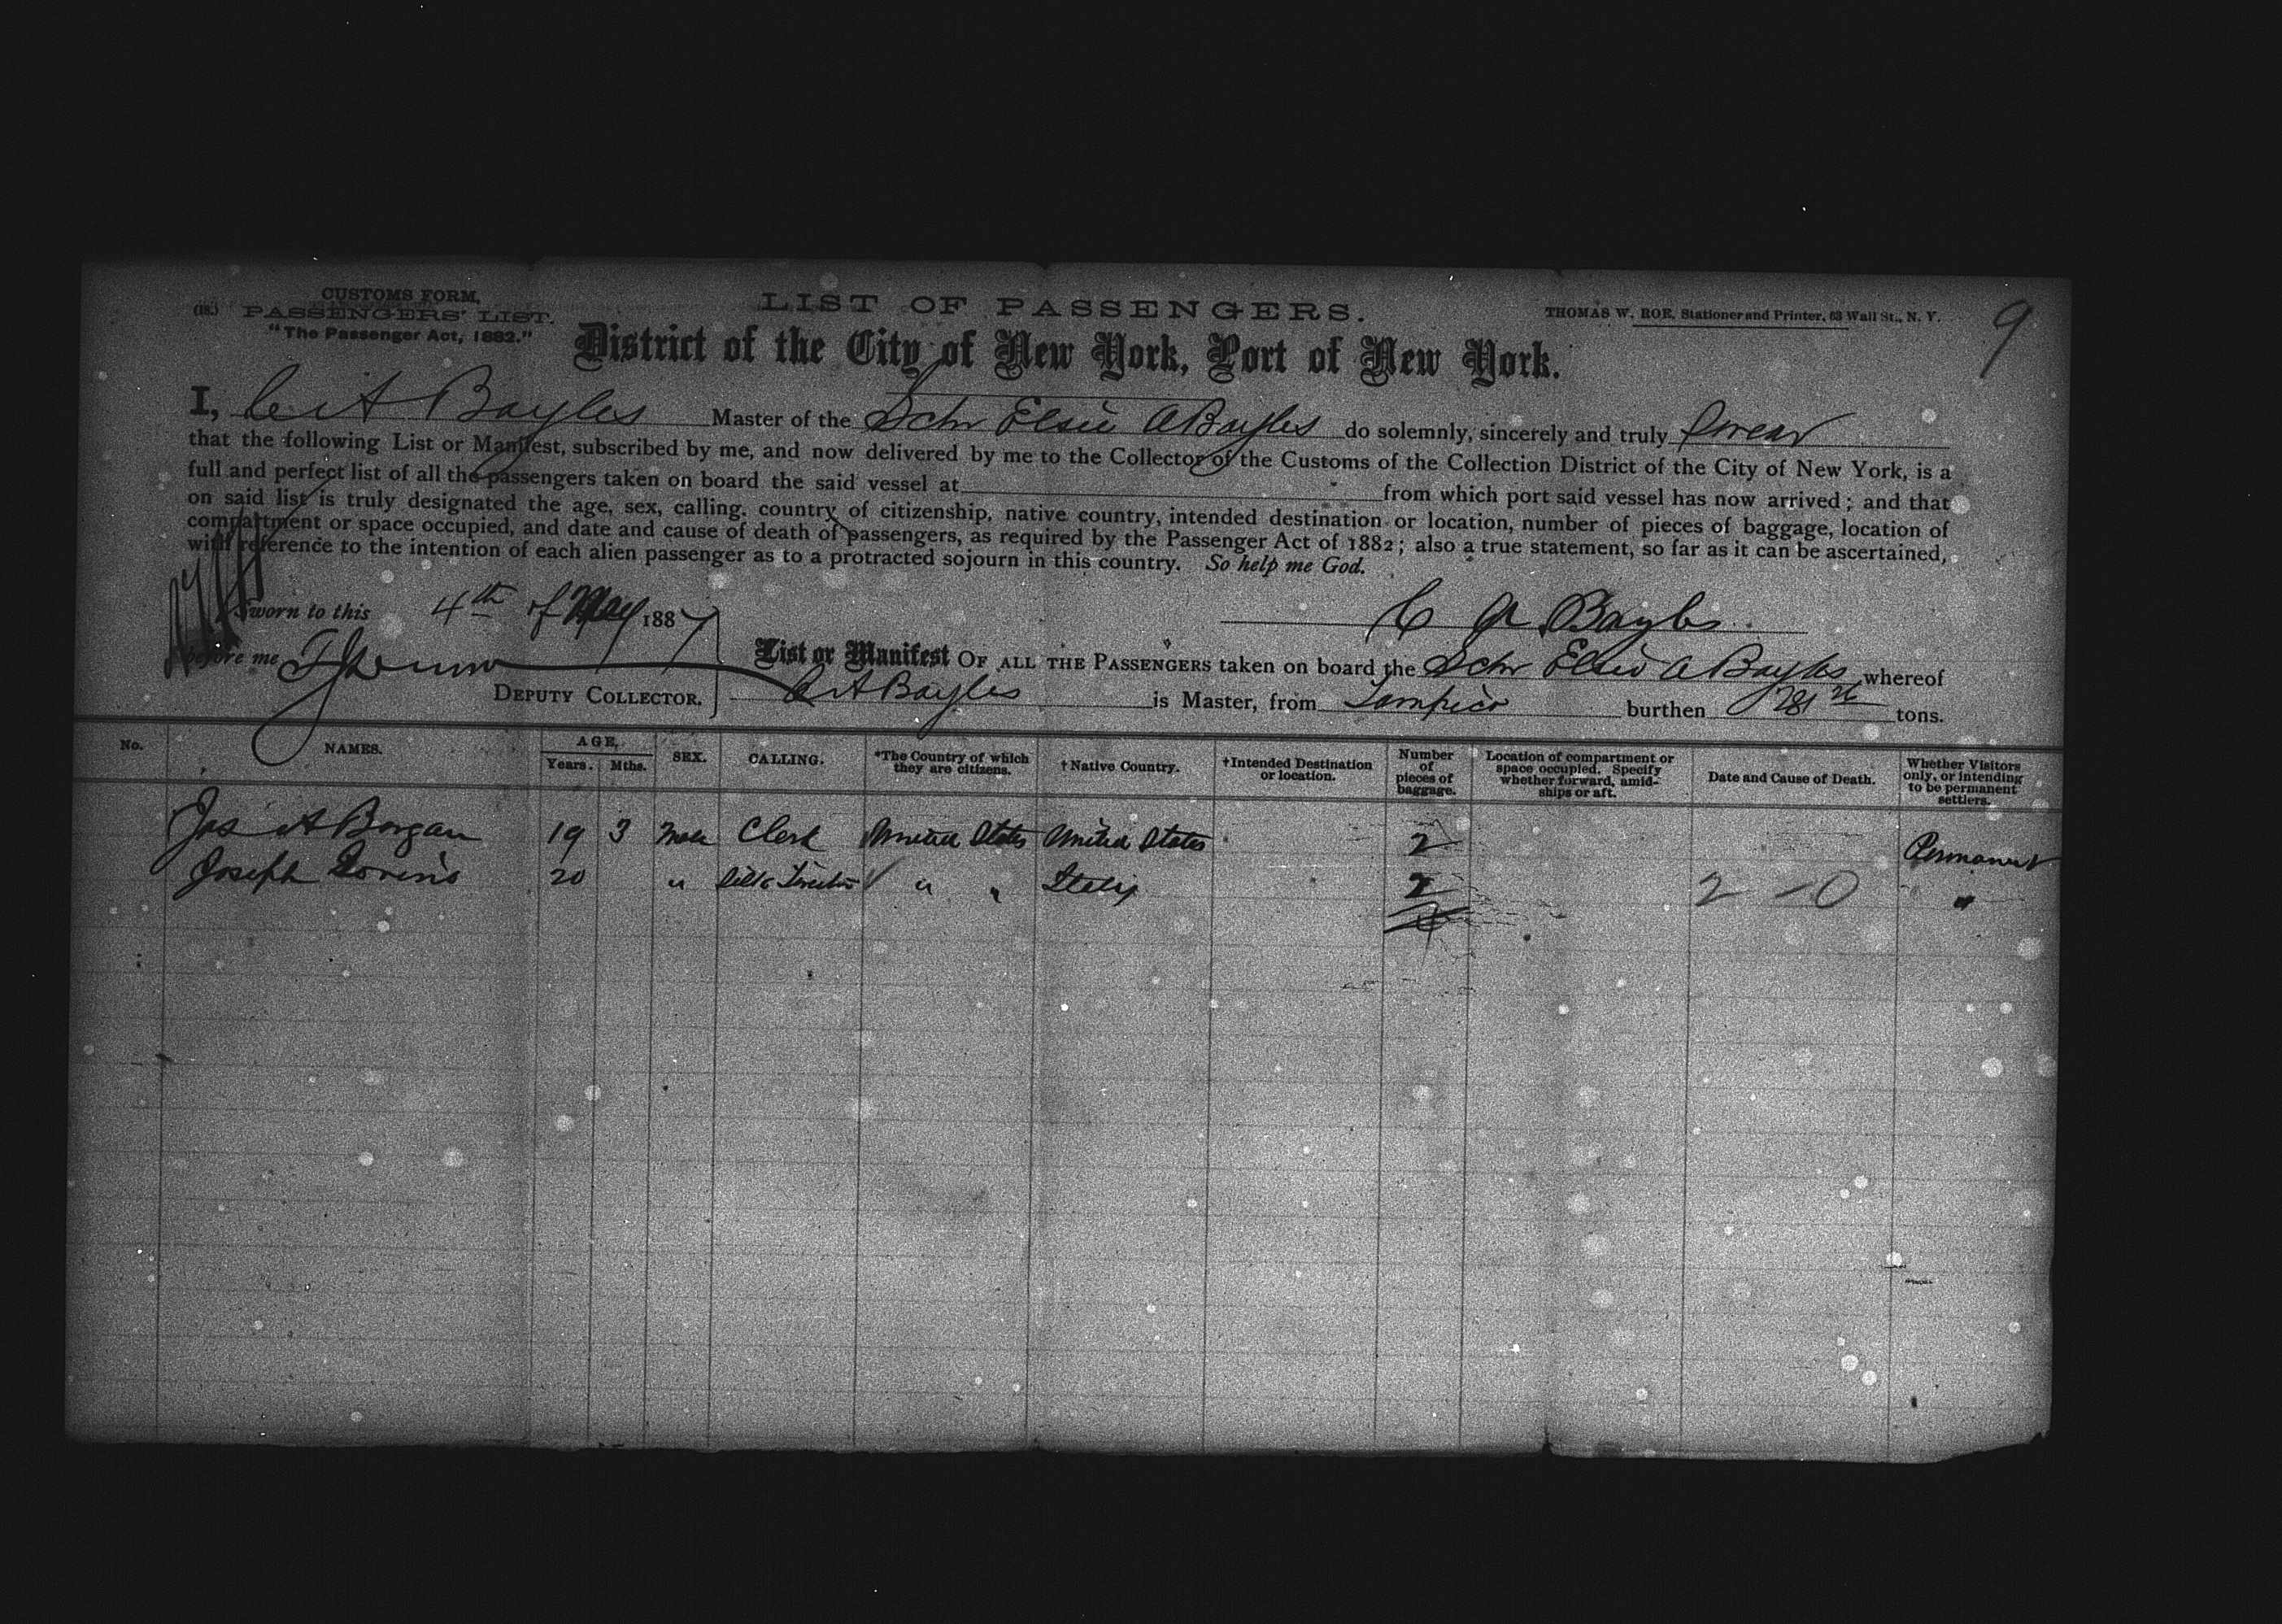 CUSTOMS FORM,
(18.) PASSENGERS' LIST.
"The Passenger Act, 1882."
LIST OF PASSENGERS.
THOMAS W. ROE, Stationer and Printer, 63 Wall St., N. Y.
9
District of the City of New York, Port of New York.
I, C A Bayles Master of the Schr Elsie A Bayles do solemnly, sincerely and truly swear
that the following List or Manifest, subscribed by me, and now delivered by me to the Collector of the Customs of the Collection District of the City of New York, is a
full and perfect list of all the passengers taken on board the said vessel at from which port said vessel has now arrived; and that
on said list is truly designated the age, sex, calling, country of citizenship, native country, intended destination or location, number of pieces of baggage, location of
compartment or space occupied, and date and cause of death of passengers, as required by the Passenger Act of 1882; also a true statement, so far as it can be ascertained,
with reference to the intention of each alien passenger as to a protracted sojourn in this country. So help me God.
Sworn to this 4th of May 1887
C A Bayles
before me
DEPUTY COLLECTOR.
List or Manifest OF ALL THE PASSENGERS taken on board the Schr Elsie A Bayles whereof
C A Bayles is Master, from Tampico burthen 281 tons.
No. NAMES. AGE. Years. Mths. SEX. CALLING. *The Country of which they are citizens. †Native Country. †Intended Destination or location. Number of pieces of baggage. Location of compartment or space occupied. Specify whether forward, amidships or aft. Date and Cause of Death. Whether Visitors only, or intending to be permanent settlers.
Jas A Borgan 19 3 Male Clerk United States United States 2 Permanent
Joseph 20 " " " Italy 2 2 - 0 "